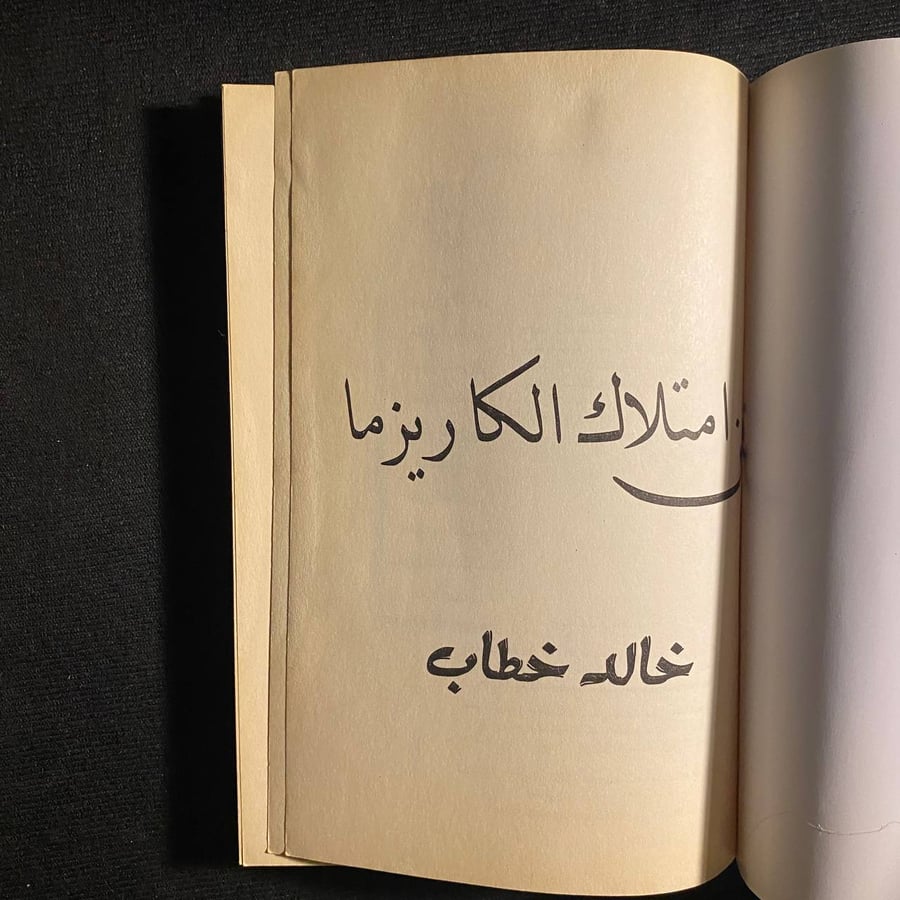 امتلاك الكاريزما
خالد خطاب